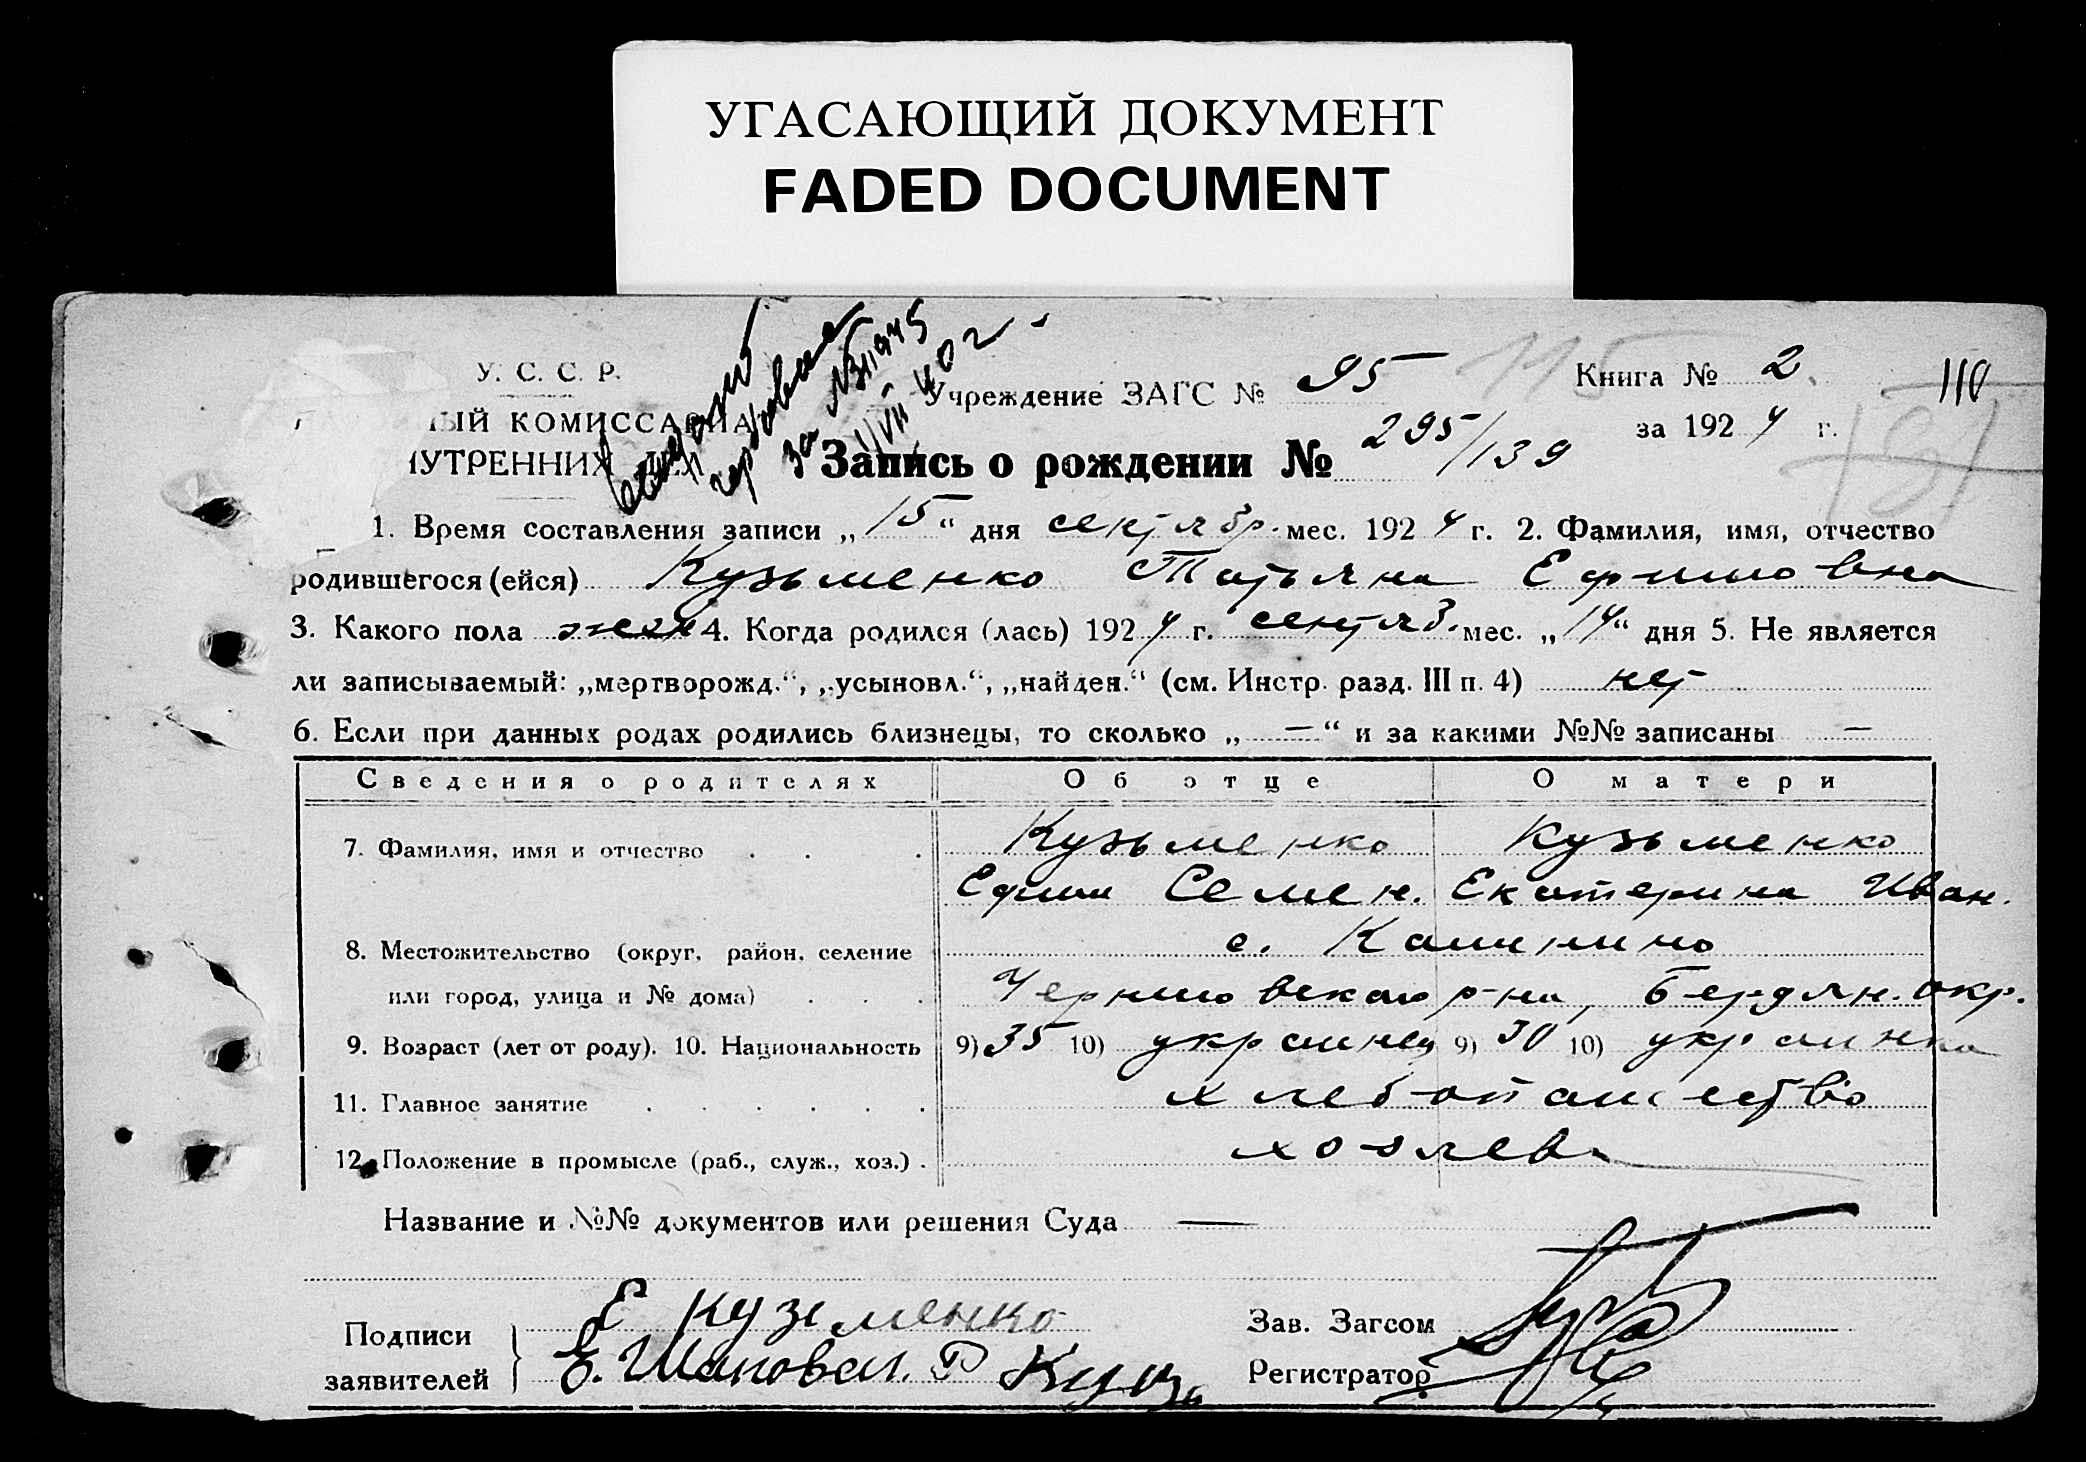 УГАСАЮЩИЙ ДОКУМЕНТ
FADED DOCUMENT
У. С. С. Р.
НЫЙ КОМИССАРИА
НУТРЕННИХ
за №
Учреждение ЗАГС № 95
115
Книга № 2.
110
за 1924 г.
Запись о рождении № 295/139
1. Время составления записи „15“ дня сентябр. мес. 1924 г. 2. Фамилия, имя, отчество
родившегося (ейся) Кузьменко Татьяна Ефимовна
3. Какого пола жен 4. Когда родился (лась) 1924 г. сентяб. мес. „14“ дня 5. Не является
ли записываемый: „мертворожд.“, „усыновл.“, „найден.“ (см. Инстр. разд. III п. 4) нет
6. Если при данных родах родились близнецы, то сколько „—“ и за какими №№ записаны —
Сведения о родителях Об отце О матери
7. Фамилия, имя и отчество . . . Кузьменко Кузьменко
Ефим Семен. Екатерина Иван.
8. Местожительство (округ, район, селение с. Калинино
или город, улица и № дома) . . . р-на, Бердян. окр.
9. Возраст (лет от роду). 10. Национальность 9) 35 10) украинец 9) 30 10) украинка
11. Главное занятие . . . . . . хлебопашество
12. Положение в промысле (раб., служ., хоз.) . хозяева
Название и №№ документов или решения Суда —
Подписи заявителей
Е Кузьменко
Е. Шаповал. Р Кузь
Зав. Загсом
Регистратор